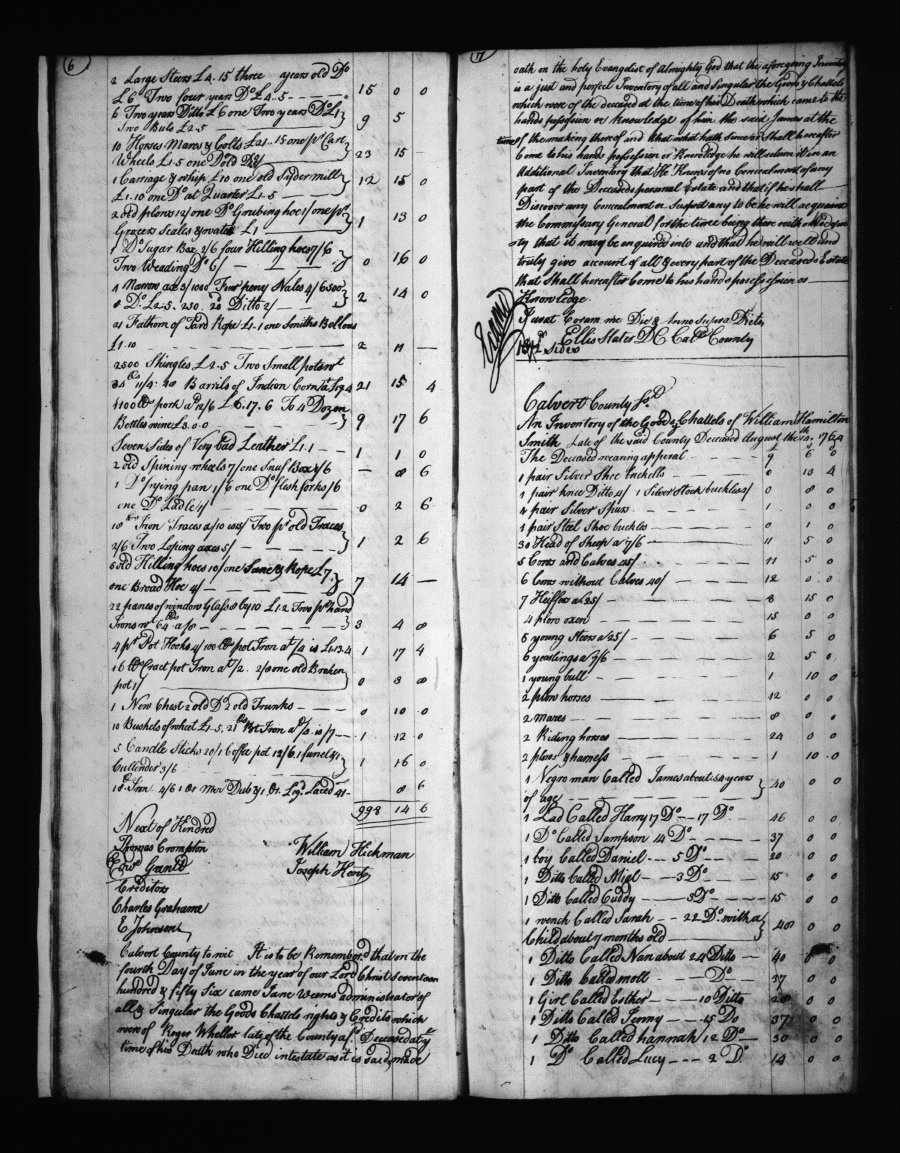 6
2 Large Steers £4.15 three years old Do
£6 Two four year Do £4-5 - - - - 15 0 0
6 Two years Ditto £6 one Two years Do £1
Two Bulls £2-5 9 5
10 Horses Mares & Colts £21.15 one pr Cart
Wheels £1.5 one Do old 23 15 -
1 Carriage & whip £10 one old Syder mill
£1.10 one Do at Quarter £1-5 12 15 0
2 old plows 12/ one Do Grubing hoe 1/ one pr
Grocers Scales £1 1 13 0
1 Do Sugar Box 2/6 four Hilling hoes 7/6
Two Weading Do 6/ 0 16 0
4 Marrow axes 5/ 1000 Four peny Nales 4/6 6500
8 Do £2-5. 250. 20 Ditto 2/ 2 14 0
21 Fathom of Tard Rope £1-1 one Smiths Bellows
£1-10 2 11 -
2500 Shingles £2-5 Two Small pots wt
34 lbs 11/4 28 Barrils of Indian Corn 21 15 4
4100 lb pork a 12/6 £6.17.6 To 4 Dozen
Bottles wine £3.0.0 9 17 6
Seven Sides of Very bad Leather £1.1 1 1 0
2 old Spining wheels 7/ one Snuf Box 1/6 - 8 6
1 Do frying pan 1/6 one Do flesh forks /6
one Do Ladle 1/ 0 2 6
10 lb Iron Traces a /10 Two pr old Traces
2/6 Two Loping axes 5/ 1 2 6
5 old Hilling hoes 10/ one Sane & Rope £7
one Broad Hoe 4/ 7 14 -
22 panes of window Glass 8 by 10 £1.2 Two pr hand
Irons wt 64 a /8 3 4 8
4 pr Pot Hooks 4/ 100 lb pot Iron at /4 is £1.13.4 1 17 4
16 lb Cract pot Iron at /2. 2/8 one old Broken
pot 1/ 0 3 8
1 New Chest 2 old Do 2 old Trunks 0 10 0
10 Bushels of wheet £1-5. 21 lbs Pot Iron at /3 is /7 1 12 0
5 Candle Sticks 20/ 1 Coffee pot 12/6. 1 funel 1/
Cullender 3/6 1 16 0
18 lb Iron 4/6 8 6
998 14 6
Next of Kindred
Thomas Crompton William Hickman
Edwd Gantt Joseph Hent
Creditors
Charles Grahame
E Johnson
Calvert County to wit It is to be Remember.d that on the
fourth Day of June in the year of our Lord Christ Seventeen
hundred & fifty Six came Jane Weems administrator of
all & Singular the Goods Chattels rights & Credits which
were of Roger Wheller late of the County afsd Deceased at ye
time of his Death who Died intestate as it is said, made
7
oath on the holy Evangelist of Almighty God that the aforegoing Inventory
is a just and perfect Inventory of all and Singular the Goods & Chattels
which were of the deceased at the time of his Death which came to the
hands possession or knowledge of him the said James at the
time of the making thereof and what what hath Since or Shall hereafter
Come to his hands possession or Knowledge he will return it in an
Additional Inventory that He Knows of no Concealment of any
part of the Deceaseds personal Estate and that if he shall
Discover any Concealment or Suspect any to be he will acquaint
the Commissary General for the time being there with or his Deputy
that it may be enquired into and that he will well and
truly give account of all & every part of the Deceaseds Estate
that Shall hereafter Come to his hands possession or
Knowledge
Jurat Coram me Die & Anno Supra Dicto
Ellis Slater DC Calt County
Sides
Calvert County Sct
An Inventory of the Goods & Chattels of William Hamilton
Smith Late of the said County Deceased August the 1764
The Deceased wearing apperal - - 9 6 0
1 pair Silver Shoe buckells 0 13 4
1 pair knee Ditto 4/ 1 Silver Stock buckles 4/ 0 8 0
1 pair Silver Spurs 1 0 0
1 pair Steel Shoe buckles 0 1 0
30 Head of Sheep a 7/6 11 5 0
5 Cows and Calves 45/ 11 5 0
6 Cows without Calves 40/ 12 0 0
7 Heiffers a 25/ 8 15 0
4 plow oxen 15 0 0
5 young Steers a 25/ 6 5 0
6 yearlings a 7/6 2 5 0
1 young bull 1 10 0
2 plow horses 12 0 0
2 mares 8 0 0
2 Riding horses 24 0 0
2 plows & harness 1 10 0
1 Negro man Called James about 54 years
of age 40 0 0
1 Lad Called Harry 17 Do - - 17 Do 46 0 0
1 Do Called Sampson 14 Do 37 0 0
1 boy Called Daniel - - 5 Do 20 0 0
1 Ditto Called Migl - - 3 Do 15 0 0
1 Ditto Called Cuddy - - 3 Do 15 0 0
1 wench Called Sarah - - 22 Do. with a
Child about 7 months old 48 0 0
1 Ditto Called Nan about 24 Ditto 40 0 0
1 Ditto Called moll - - Do 37 0 0
1 Girl Called Esther - - 10 Ditto 28 0 0
1 Ditto Called Jenny - - 15 Do 37 0 0
1 Ditto Called hannah 12 Do 30 0 0
1 Do Called Lucy - - - 2 Do 14 0 0